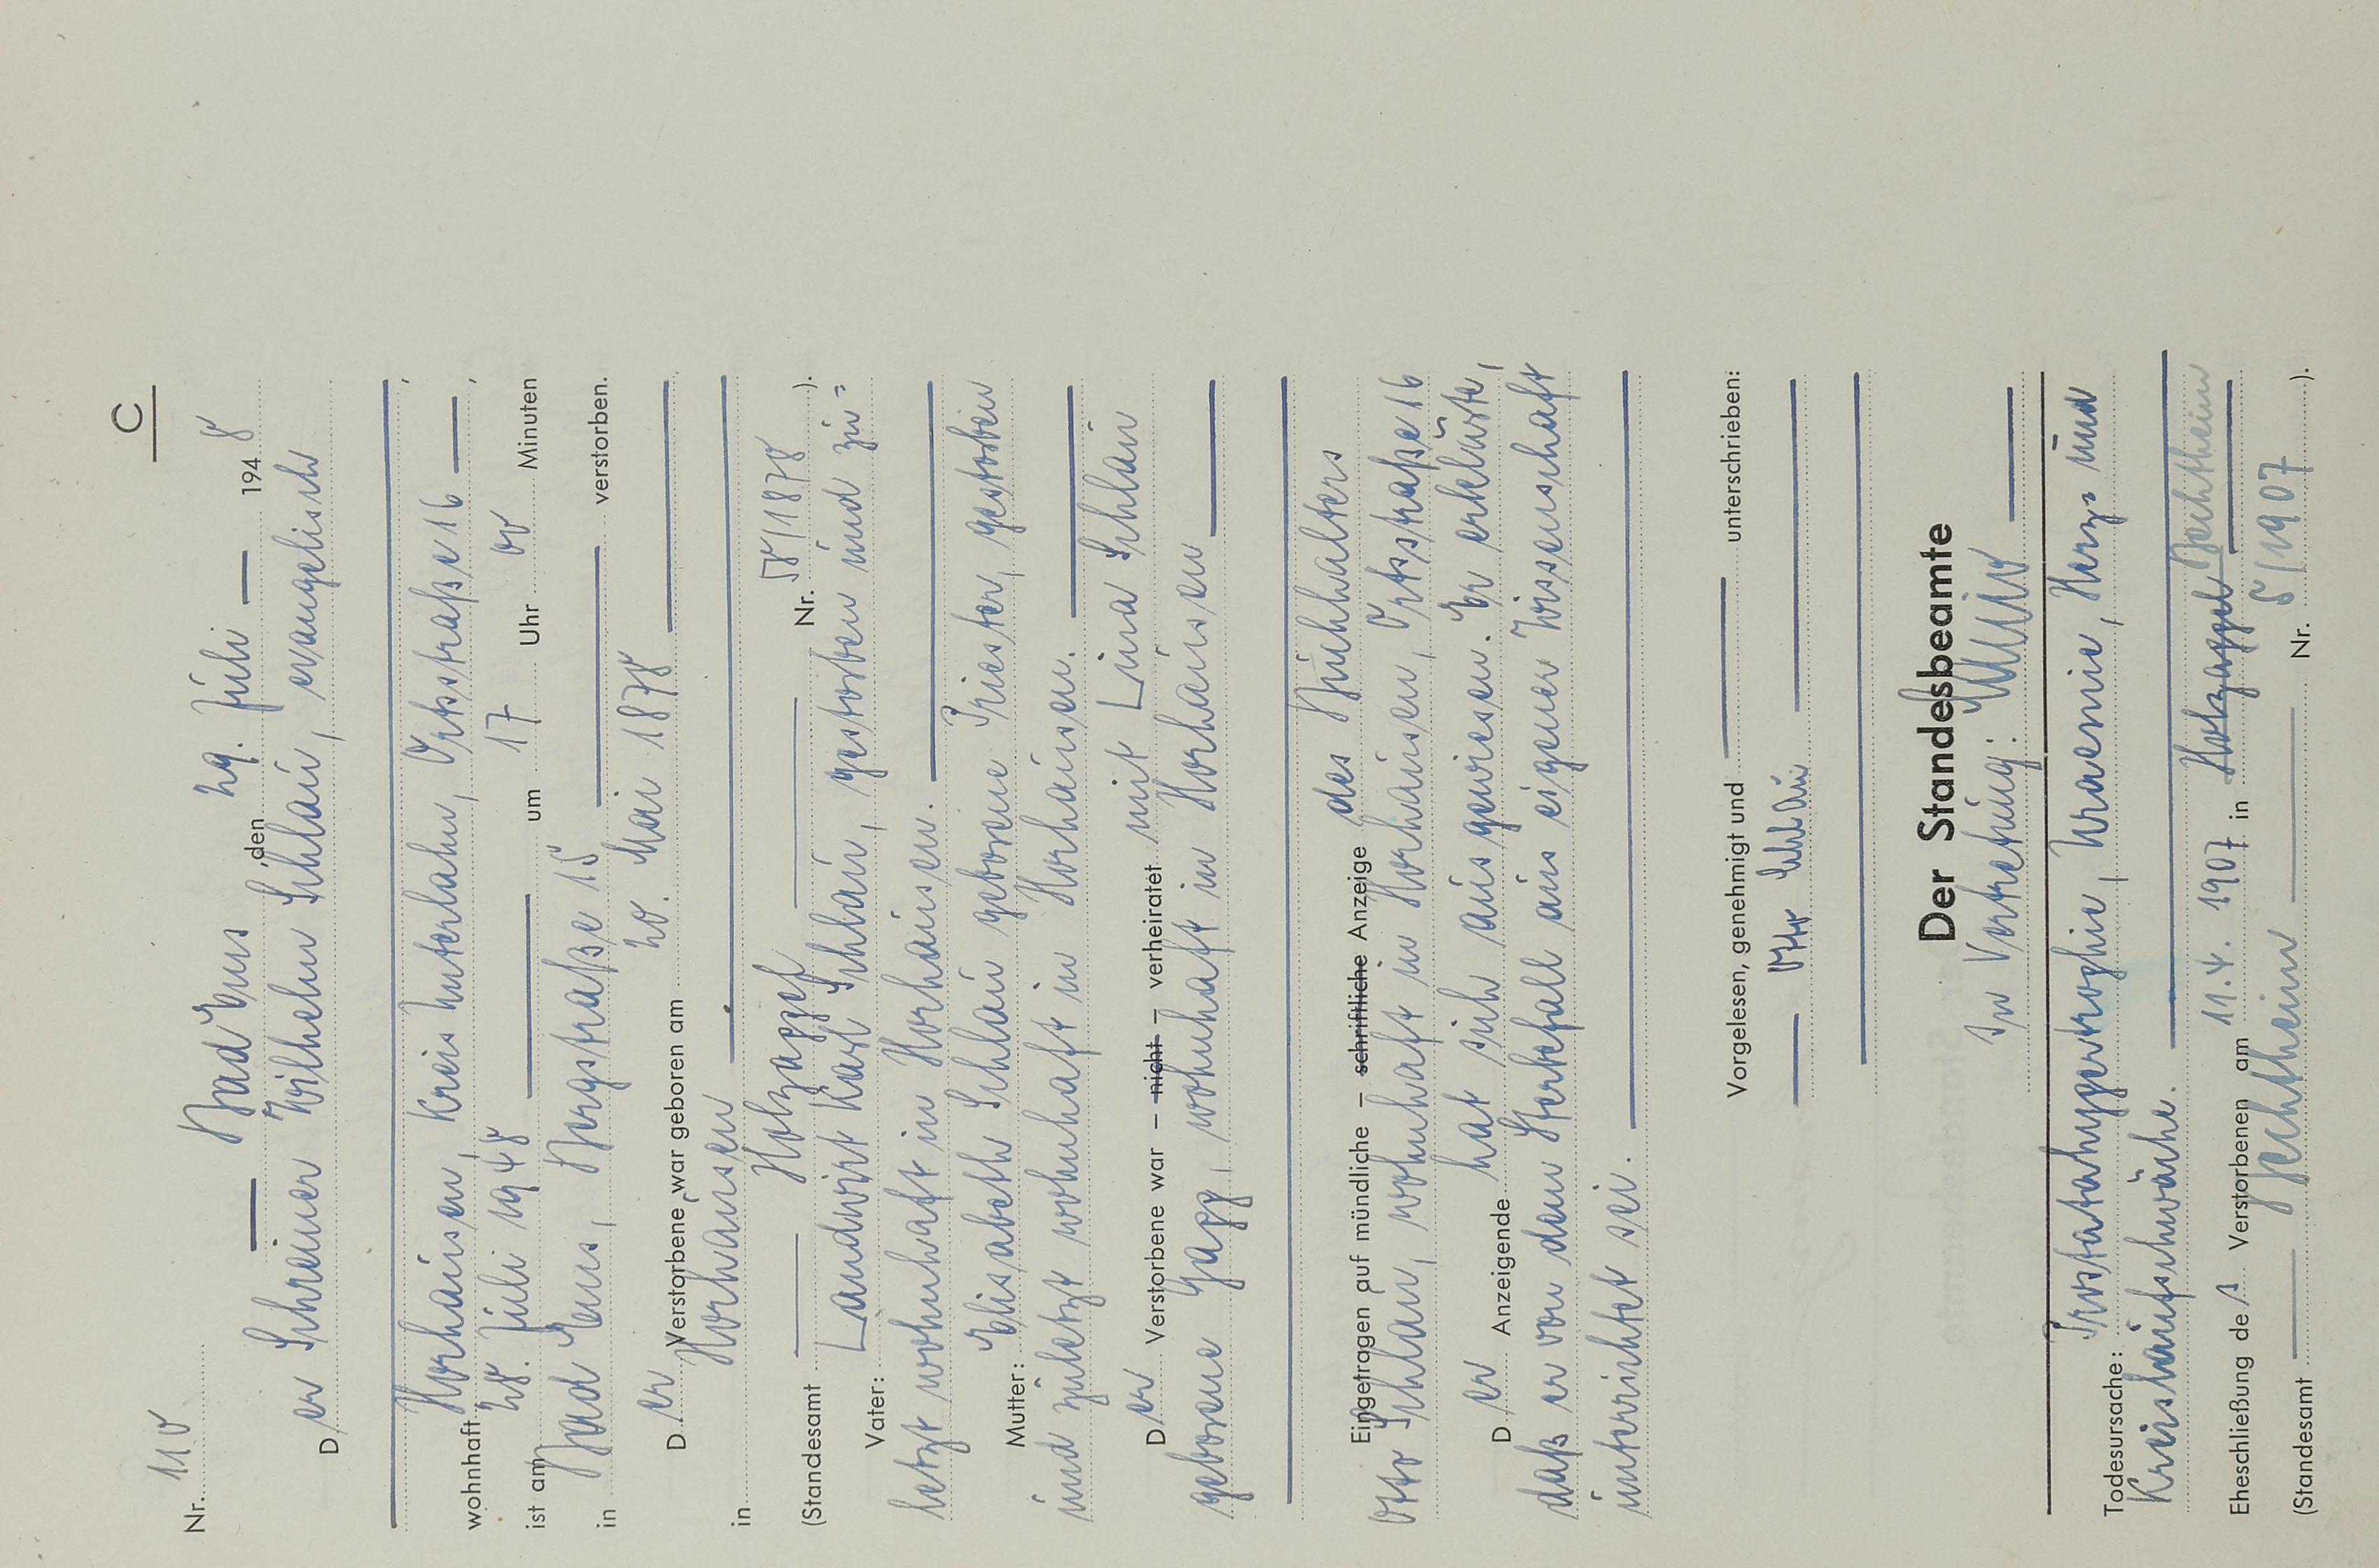 C
Nr. 110
Bad Ems, den 29. Juli 1948
Der Schreiner Wilhelm Schlau, evangelisch
wohnhaft Horhausen, Kreis Unterlahn, Ortsstraße 16,
ist am 28. Juli 1948 um 17 Uhr 00 Minuten
in Bad Ems, Bergstraße 15 verstorben.
Der Verstorbene war geboren am 20. Mai 1878
in Horhausen
(Standesamt Holzappel Nr. 58/1878).
Vater: Landwirt Karl Schlau, gestorben und zu=
letzt wohnhaft in Horhausen.
Mutter: Elisabeth Schlau geborene Priester, gestorben
und zuletzt wohnhaft in Horhausen.
Der Verstorbene war – nicht – verheiratet mit Lina Schlau
geborene Gapp, wohnhaft in Horhausen
Eingetragen auf mündliche – schriftliche Anzeige des Buchhalters
Otto Schlau, wohnhaft in Horhausen, Ortsstraße 16
Der Anzeigende hat sich ausgewiesen. Er erklärte,
daß er von dem Sterbefall aus eigener Wissenschaft
unterrichtet sei.
Vorgelesen, genehmigt und unterschrieben:
Otto Schlau
Der Standesbeamte
In Vertretung:
Todesursache: Prostatahypertrophie, Uraemie, Herz und
Kreislaufschwäche.
Eheschließung des Verstorbenen am 11.4. 1907 in Holzappel Bechtheim
(Standesamt Bechtheim Nr. 5/1907).